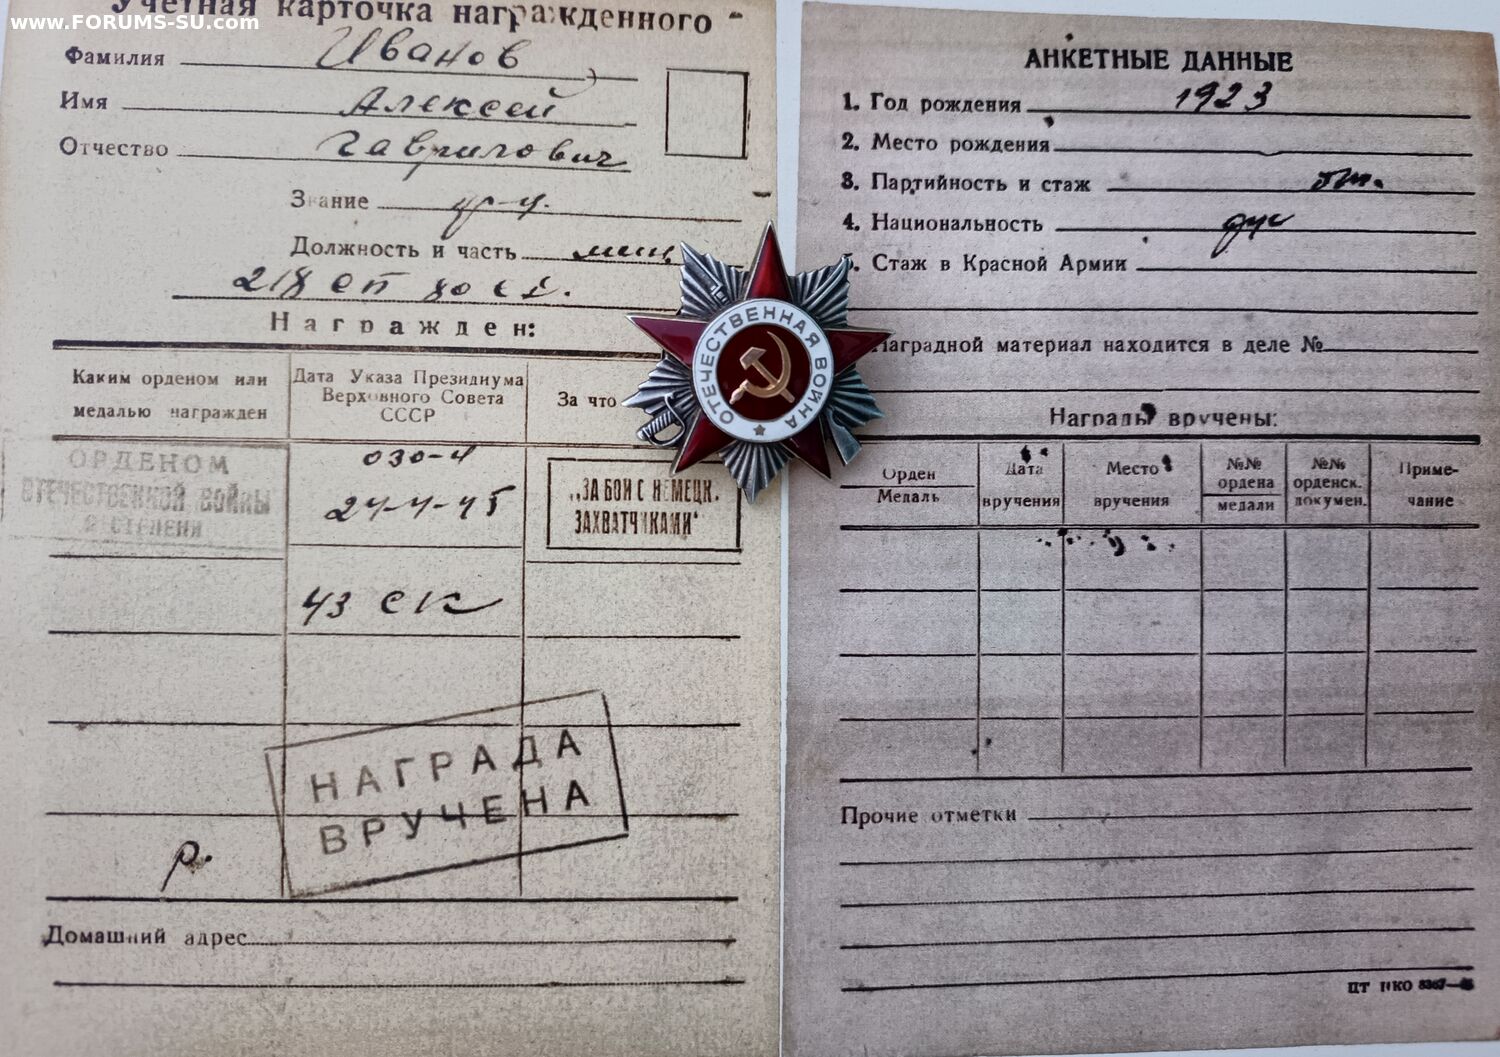 www.FORUMS-SU.com
Учетная карточка награжденного
Фамилия Иванов
Имя Алексей
Отчество Гаврилович
Звание
Должность и часть
218 сп 80 сд.
Награжден:
Каким орденом или медалью награжден
Дата Указа Президиума Верховного Совета СССР
За что
ОРДЕНОМ
ОТЕЧЕСТВЕННОЙ ВОЙНЫ
СТЕПЕНИ
030-н
24-4-45
„ЗА БОИ С НЕМЕЦК.
ЗАХВАТЧИКАМИ“
43 ск
НАГРАДА
ВРУЧЕНА
р.
Домашний адрес
ОТЕЧЕСТВЕННАЯ ВОЙНА
АНКЕТНЫЕ ДАННЫЕ
1. Год рождения 1923
2. Место рождения
3. Партийность и стаж
4. Национальность рус
5. Стаж в Красной Армии
Наградной материал находится в деле №
Награды вручены:
Орден
Медаль
Дата вручения
Место вручения
№№ ордена медали
№№ орденск. докумен.
Приме-
чание
Прочие отметки
ЦТ НКО